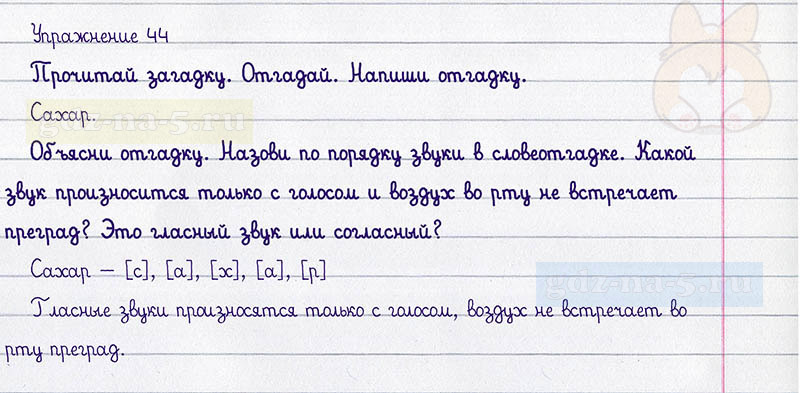 Упражнение 44
Прочитай загадку. Отгадай. Напиши отгадку.
Сахар.
gdz-na-5.ru
Объясни отгадку. Назови по порядку звуки в словеотгадке. Какой
звук произносится только с голосом и воздух во рту не встречает
преград? Это гласный звук или согласный?
Сахар – [с], [а], [х], [а], [р]
gdz-na-5.ru
Гласные звуки произносятся только с голосом, воздух не встречает во
рту преград.